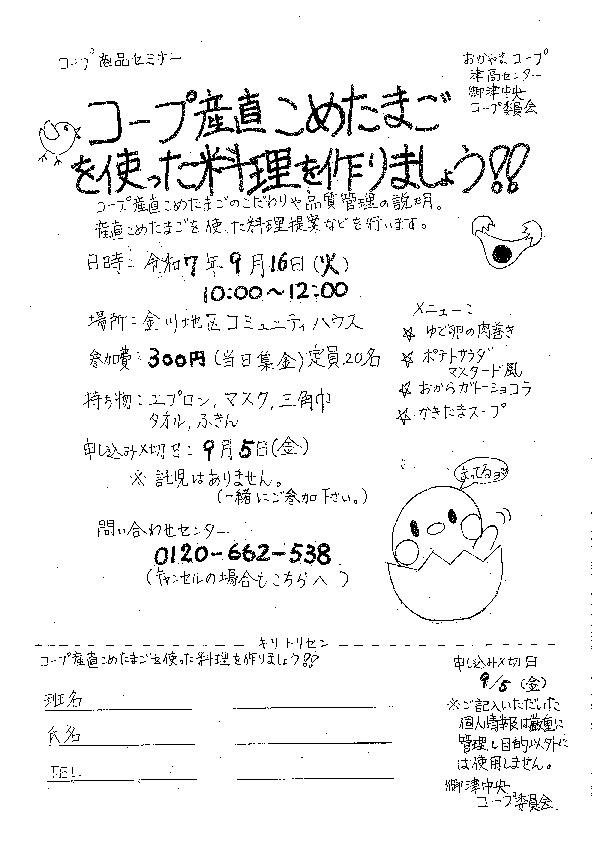 コープ商品セミナー
おかやまコープ
津高センター
御津中央
コープ委員会
コープ産直こめたまご
を使った料理を作りましょう!!
コープ産直こめたまごのこだわりや品質管理の説明。
産直こめたまごを使った料理提案などを行います。
日時：令和7年9月16日(火)
10:00〜12:00
場所：金川地区コミュニティハウス
参加費：300円(当日集金)定員20名
持ち物：エプロン,マスク,三角巾
タオル,ふきん
申し込み〆切日：9月5日(金)
※託児はありません。
(一緒にご参加下さい。)
メニュー：
☆ゆで卵の肉巻き
☆ポテトサラダ
マスタード風
☆おからガトーショコラ
☆かきたまスープ
まってるヨ
問い合わせセンター
0120-662-538
(キャンセルの場合もこちらへ)
キリトリセン
コープ産直こめたまごを使った料理を作りましょう!!
班名
氏名
TEL
申し込み〆切日
9/5(金)
※ご記入いただいた
個人情報は厳重に
管理し目的以外に
は使用しません。
御津中央
コープ委員会